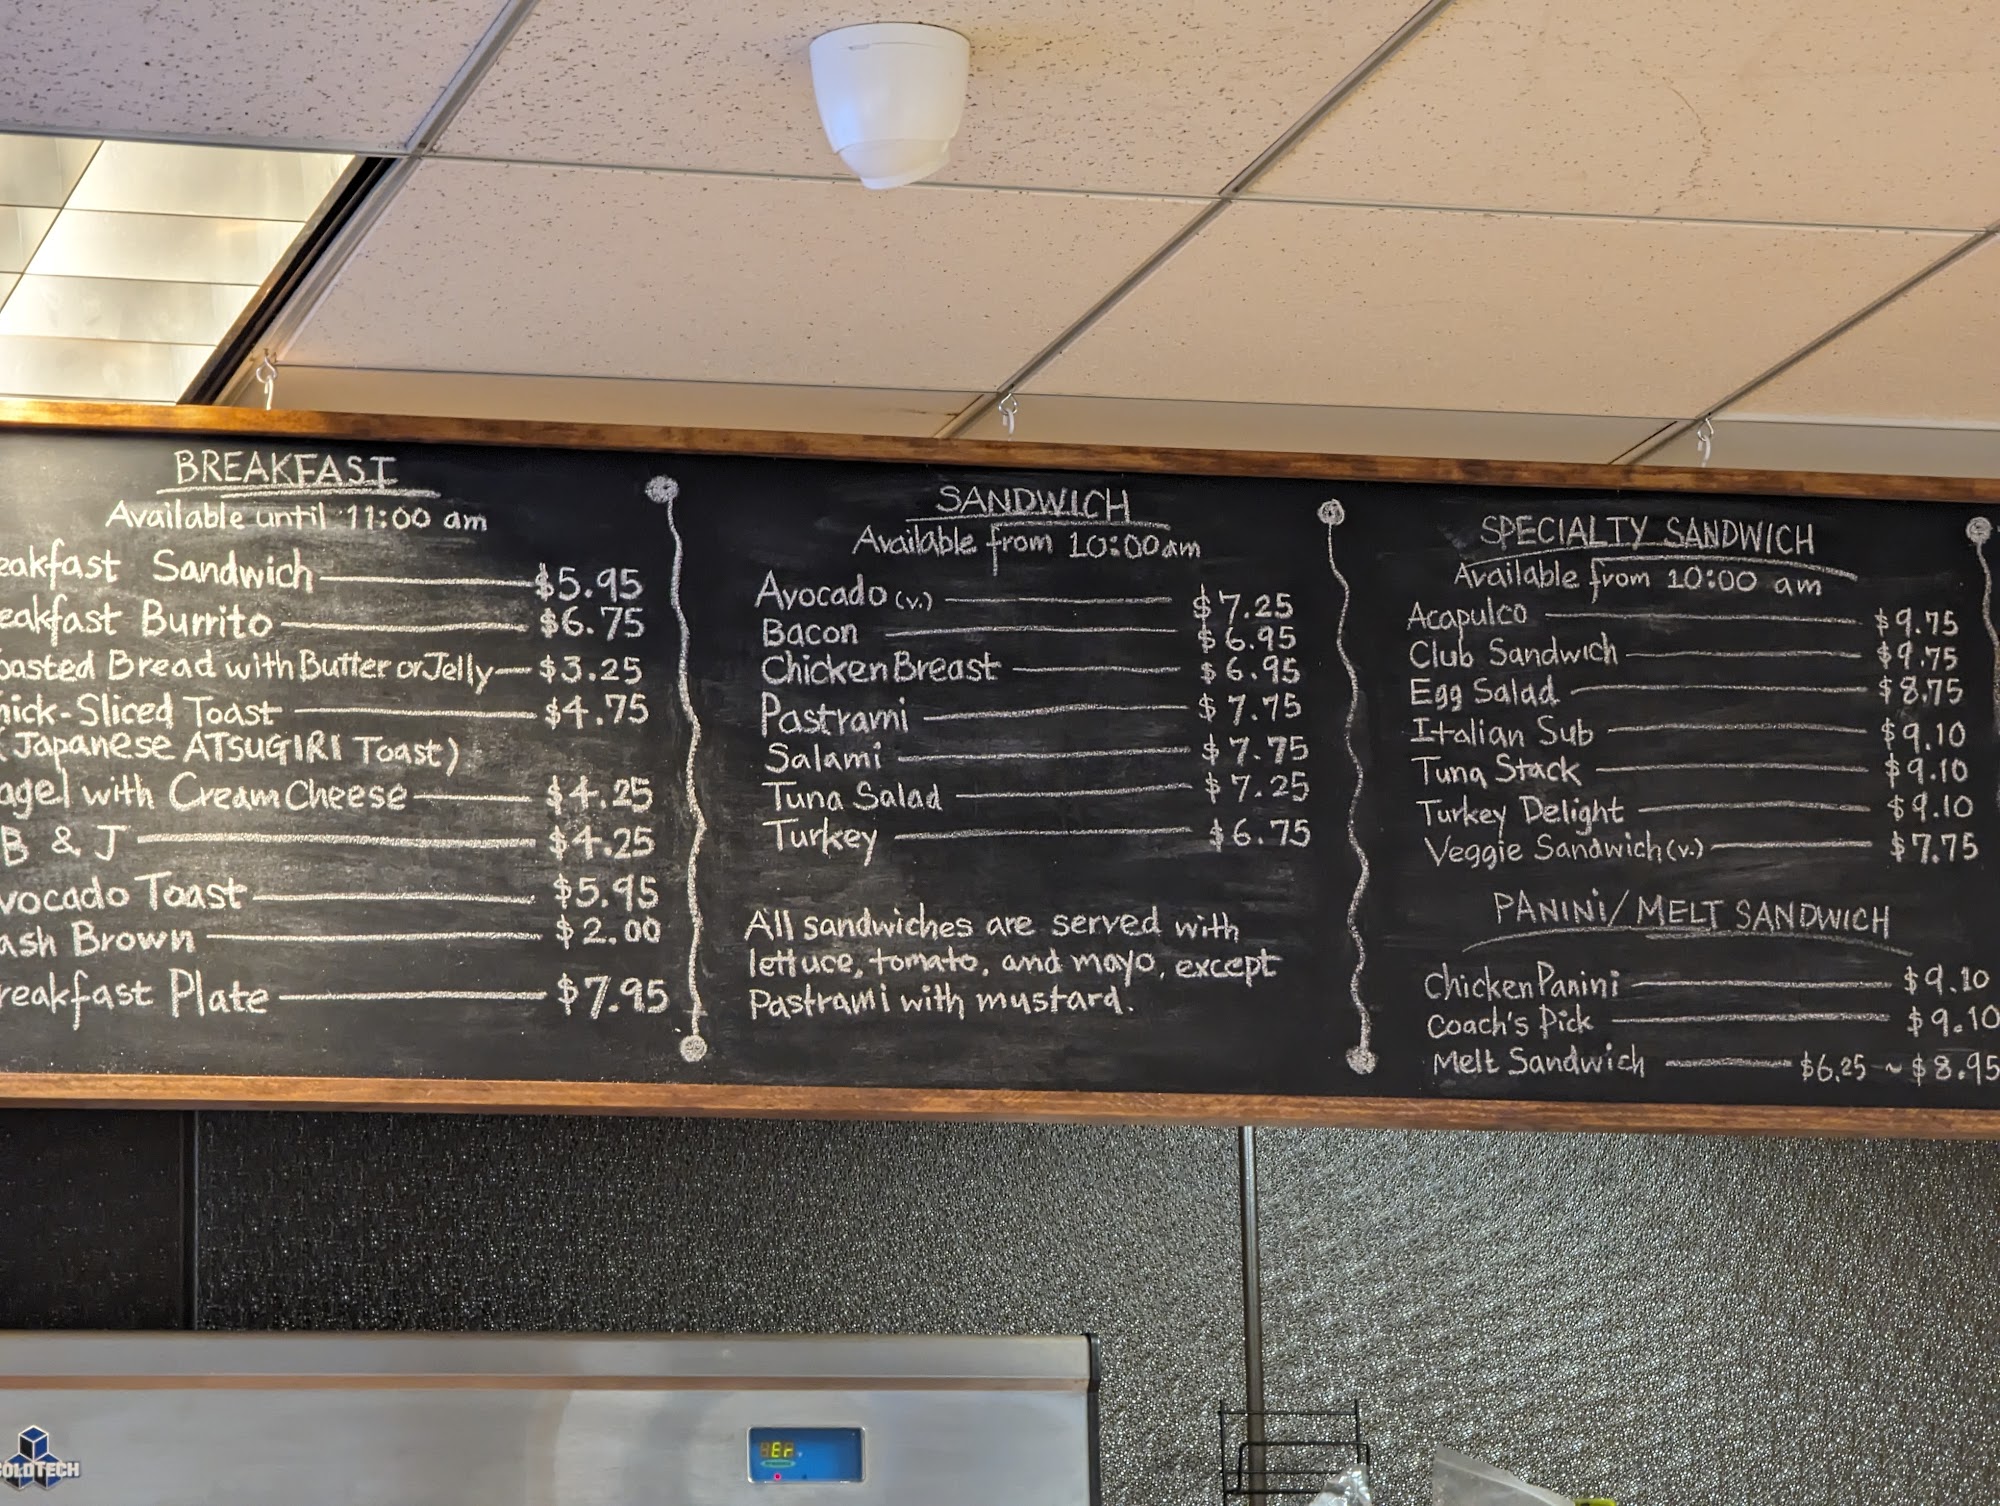 BREAKFAST
Available until 11:00 am
eakfast Sandwich $5.95
eakfast Burrito $6.75
oasted Bread with Butter or Jelly $3.25
hick-Sliced Toast $4.75
(Japanese ATSUGIRI Toast)
agel with Cream Cheese $4.25
B & J $4.25
vocado Toast $5.95
ash Brown $2.00
reakfast Plate $7.95
SANDWICH
Available from 10:00 am
Avocado (v.) $7.25
Bacon $6.95
Chicken Breast $6.95
Pastrami $7.75
Salami $7.75
Tuna Salad $7.25
Turkey $6.75
All sandwiches are served with
lettuce, tomato, and mayo, except
Pastrami with mustard.
SPECIALTY SANDWICH
Available from 10:00 am
Acapulco $9.75
Club Sandwich $9.75
Egg Salad $8.75
Italian Sub $9.10
Tuna Stack $9.10
Turkey Delight $9.10
Veggie Sandwich (v.) $7.75
PANINI/MELT SANDWICH
Chicken Panini $9.10
Coach's Pick $9.10
Melt Sandwich $6.25 ~ $8.95
OLDTECH